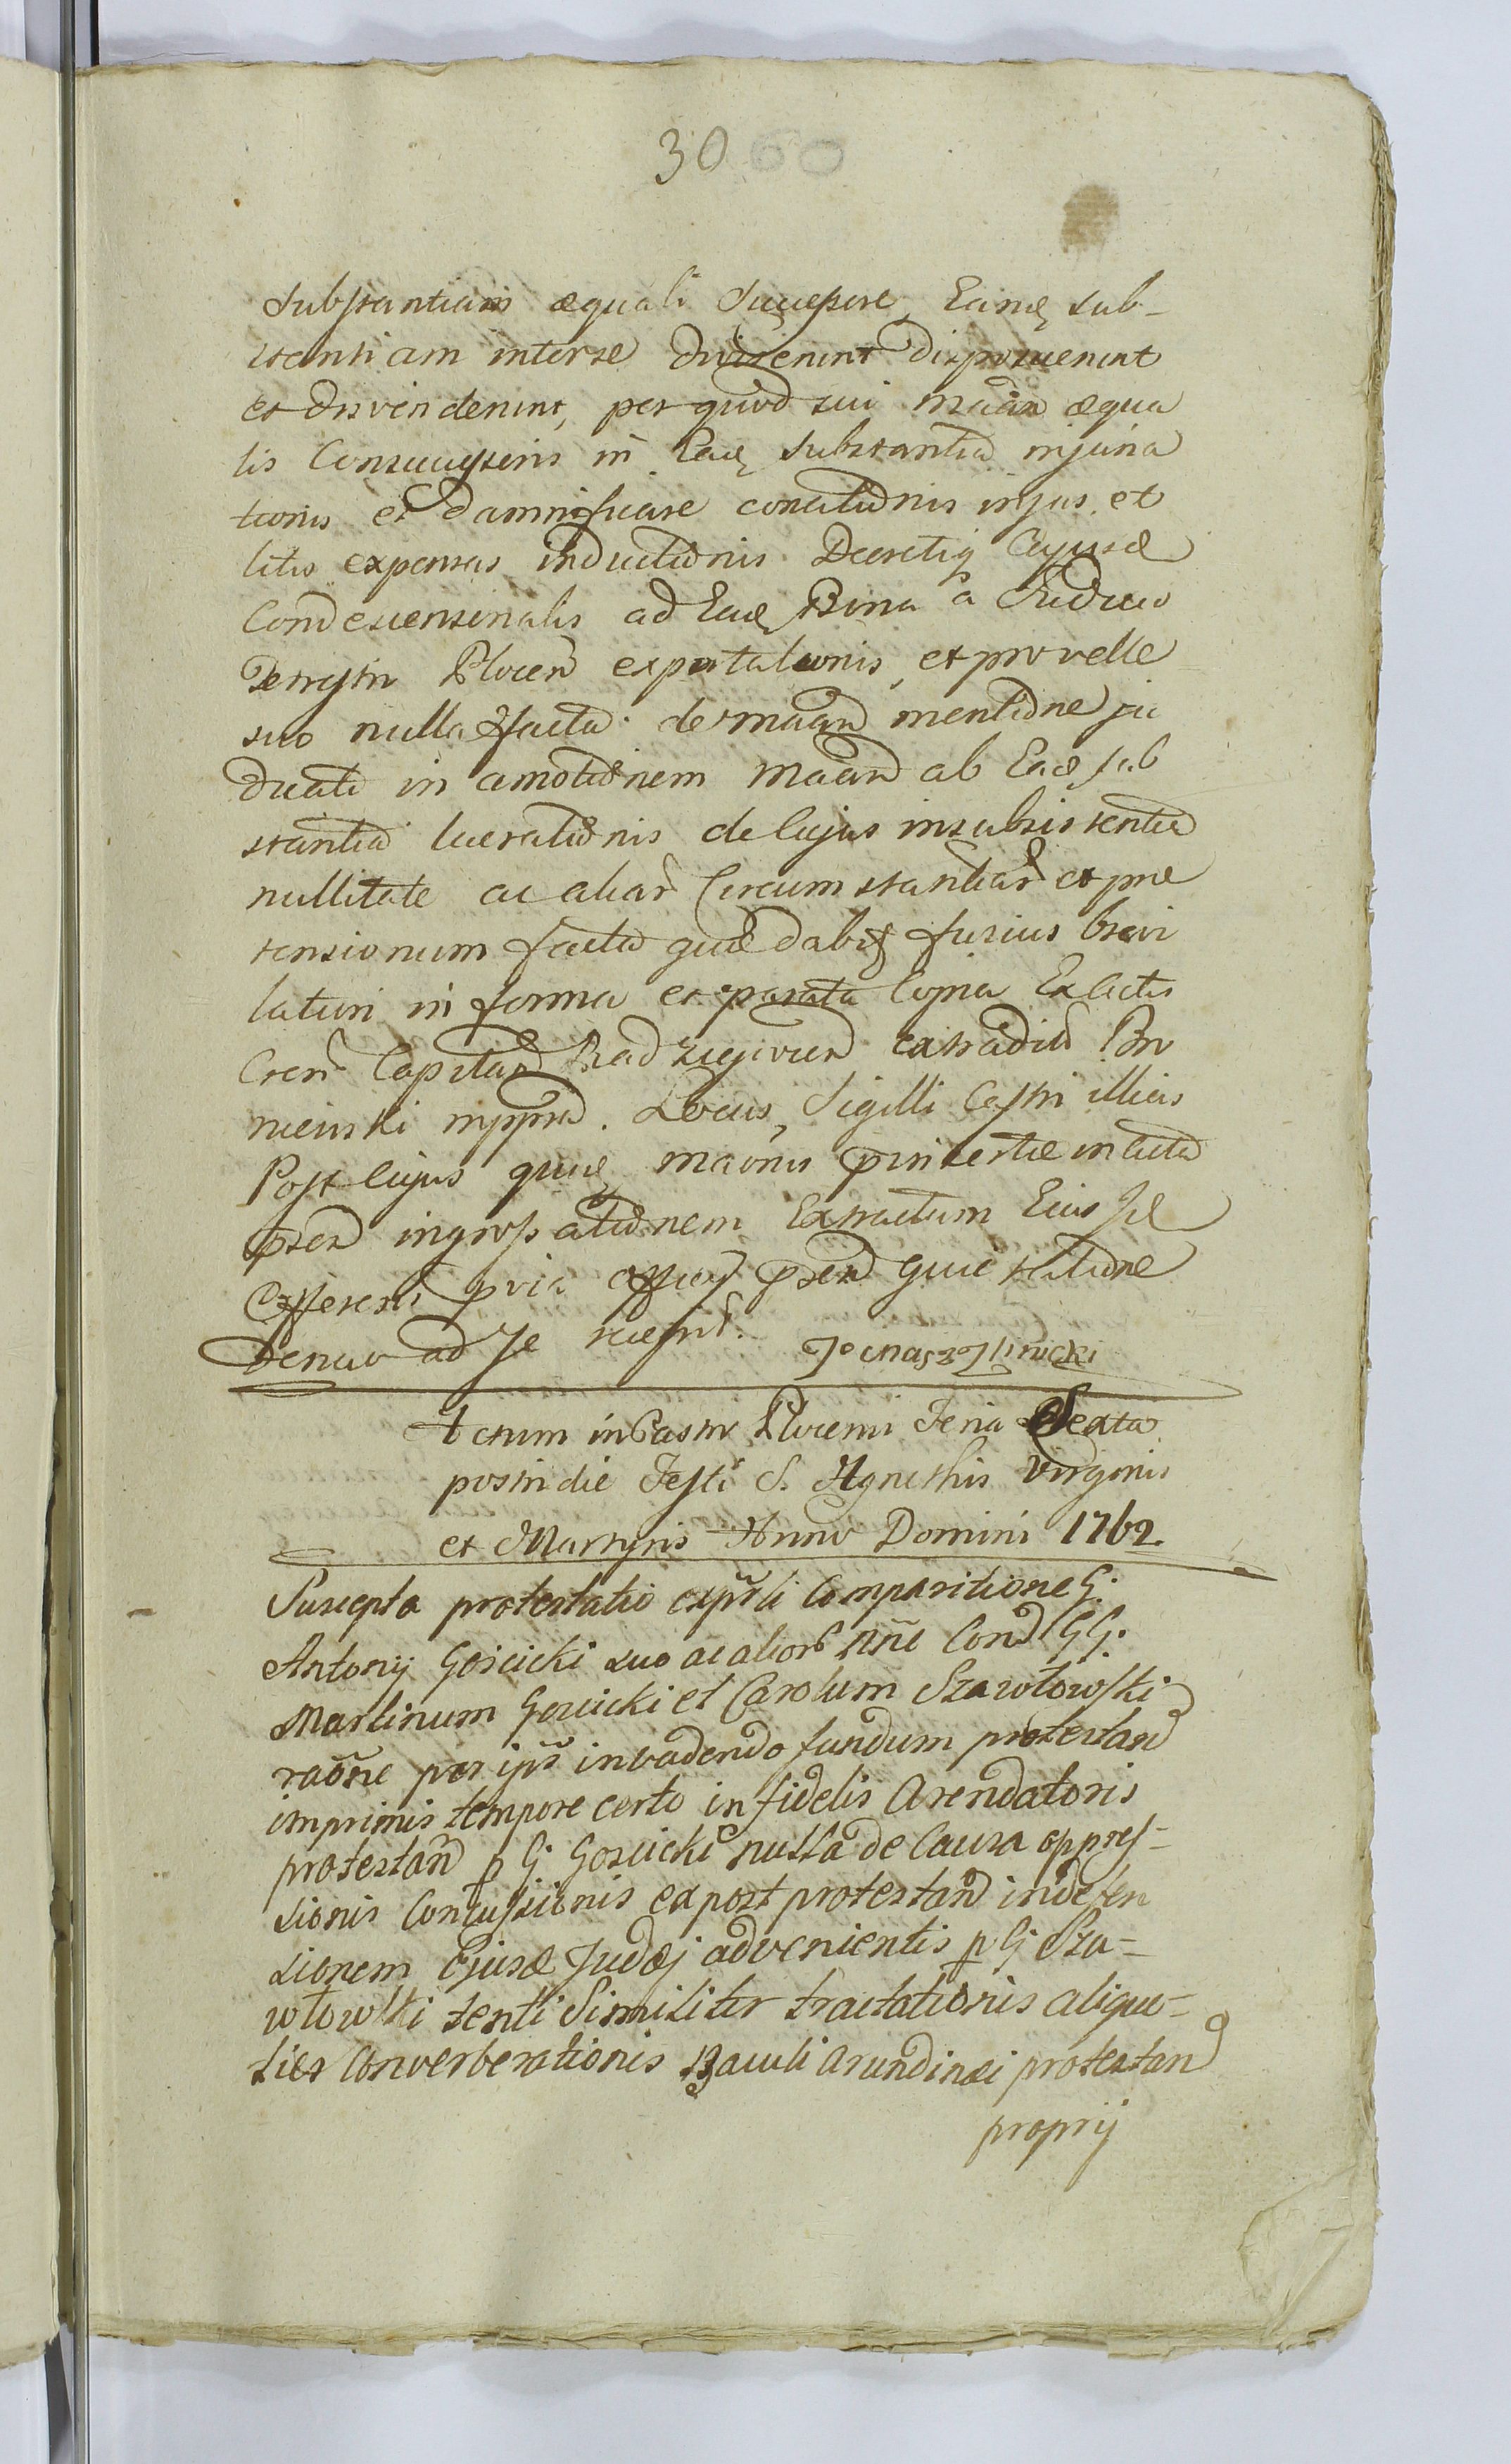 30 60
substantiam æquali Successore, Eamq sub-
stantiam interse diviserunt disposuerunt
et divenderunt, per quod sui maãn æqua
lis Consuccessoris in Eadq substantia injuria
tionis et damnificare conatiõnis injus et
litis expensas inductiõnis Decretiq Cujusd
Condescensinalis ad Ead Bona a Judicio
Terrestri Plocen exportationis, et pro velle
suo nulla facta de maãn mentiõne ju
dicati in amotiõnem maãn ab Ead sub
stantia lucratiõnis de cujus insubsistentia
nullitate ac aliar Circumstantiar et præ
tensionum facta quæ dabit fusius brevi
laturi in forma et parata Copia Ex Actis
Cren Capitan Radziejovien extradit Bro
nienski mppria. Locus Sigilli Castri illius
Post cujus quidq maonis pinsertæ in acta
præn ingrossatiõnem Extractum Ejus Jd
Offerens pria officij præn quietatiõne
Denuo ad se recepit. Jgnasz Jlinicki
Actum in Castro Plocensi Feria Sexta
postridie Festi S. Agnethis Virginis
et Martyris Anno Domini 1762.
Suscepta protestatio exprli Comparitione G.
Antonij Goscicki suo ac alior nñe Cond GG.
Martinum Goscicki et Carolum Szawłowski
raõne per ips invadendo fundum protestand
imprimis tempore certo infidelis Arendatoris
protestand p G. Goscicki nulla de Causa oppres-
sionis Concussionis ex post protestand indefen
sionem Ejusd Judæi advenientis p G Sza-
włowski senti Similiter tractationis aliquo-
ties Converberationis Baculi Arundinei protestan
proprij